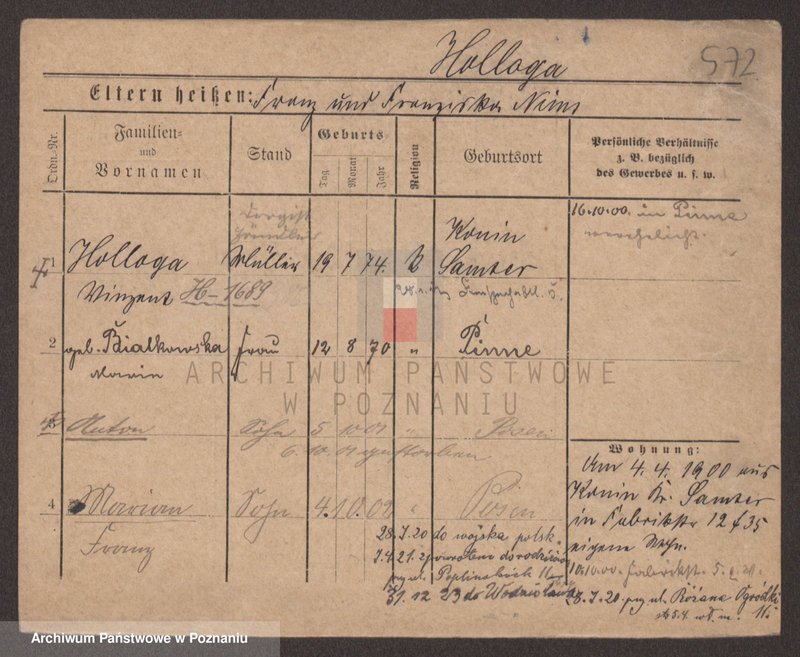 Holloga
572
Eltern heißen: Franz und Franziska
Ordn.-Nr.
Familien-
und
Vornamen
Stand
Geburts-
Tag
Monat
Jahr
Religion
Geburtsort
Persönliche Verhältnisse
z. B. bezüglich
des Gewerbes u. s. w.
16.10.00. in Pinne
verehelicht
1
Holloga
Vinzent H-1689
Müller
19 7 74.
Konin
Samter
2
geb. Bialkowska
Maria
Frau
12 8 70
"
Pinne
ARCHIWUM PAŃSTWOWE
W POZNANIU
3 Anton Sohn 5 10 01 " Posen
6.10.01 gestorben
4 Marian Sohn 4.10.02 " Posen
Franz
28.7.20 do wojska polsk.
7.4.21. z powrotem do rodziców
przy ul.
31.12 23 do
Wohnung:
Am 4.4.1900 aus
Konin Kr. Samter
in Fabrikstr 12 35
eigene Wohn.
10.10.00 Fabrikst. 5.
8.7.20. przy ul. Różana
Archiwum Państwowe w Poznaniu